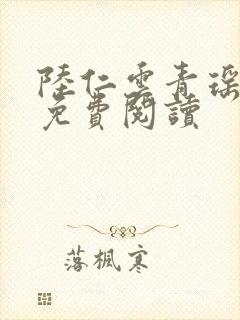 陸仁雲青瑶
免費閱讀
落楓寒